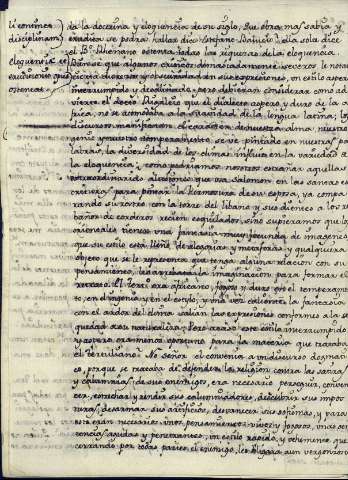 de la doctrina y eloquencia de su siglo. Que obra mas sabia y
erudita se podrá hallar dice Estefano Balucio? ella sola dice
el P. Alexano ostenta todas las riquezas de la eloquencia.
li continet
disciplinam
eloquencia
ostentat
Bien se que algunos criticos demasiadamente severos le notan
cierta dureza y obscuridad en sus expresiones, un estilo aspero
interrumpido y declinado, pero debieran considerar como ad
vierte el docto Rigalcio que el dialecto aspero y duro de la a
frica, no se acomodaba a la suavidad de la lengua latina; los
discursos manifiestan el caracter de nuestra alma, nuestro
genio y nuestro temperamento, se ve pintado en nuestras pa
labras, la diversidad de los climas influye en la variedad de
la eloquencia; como podriamos nosotros estrañar aquellas
extraordinarias alusiones que usa Salomon en los santos
canticos para pintar la hermosura de su esposa, ya compa
rando su rostro con la torre del libano y sus dientes a los re
baños de corderos recien esquilados, sino supieramos que los
orientales tienen una fantasia muy fecunda de imagenes,
que su estilo está lleno de alegorias y metaforas y qualquiera
objeto que se le represente que tenga alguna relacion con su
pensamiento, les arrebata la imaginacion para formar el
retrato. El Tertul era africano, fogoso y duro por el temperamen
to, en el ingenio y en el estilo, y una vez caliente la fantasia
con el ardor del tema salian las expresiones conformes a la se
quedad de su naturaleza. Pero acaso este estilo interrumpido
y austero era menos oportuno para la materia que trataba
el Tertuliano? No señor el convenia a un discurso dogmati
co, porque se trataba de defender la religion contra las satiras
y calumnias de sus enemigos, era necesario perseguir, conven
cer, estrechar y rendir sus calumniadores, descubrir sus impos
turas, desarmar sus artificios, desvanecer sus sofismas, y para
esto eran necesarios unos pensamientos vivos y fogosos, unas sen
tencias agudas y penetrantes, un estilo rapido, y vehemente, que
cerrando por todas partes el enemigo, le obligara a un vergonzoso